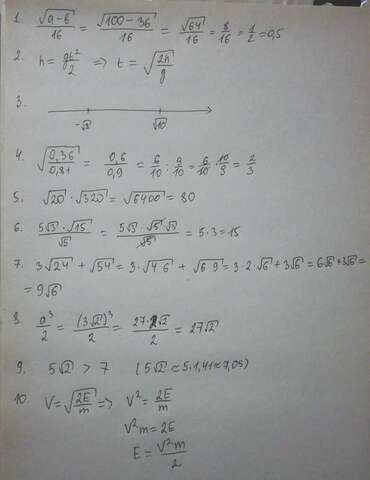 1. √(a-b)/16 = √(100-36)/16 = √64/16 = 8/16 = 1/2 = 0,5
2. h = gt²/2 ⇒ t = √(2h/g)
3.
√10
4. √(0,36/0,81) = 0,6/0,9 = 6/10 : 9/10 = 6/10 · 10/9 = 2/3
5. √20 · √320 = √6400 = 80
6. 5√3 · √15/√5 = 5√3 · √5 √3/√5 = 5·3 = 15
7. 3√24 + √54 = 3·√4·6 + √6·9 = 3·2·√6 + 3√6 = 6√6 + 3√6 =
= 9√6
8. a³/2 = (3√2)³/2 = 27·2√2/2 = 27√2
9. 5√2 > 7 (5√2 ≈ 5·1,41 ≈ 7,05)
10. V = √(2E/m) ⇒ V² = 2E/m
V²m = 2E
E = V²m/2